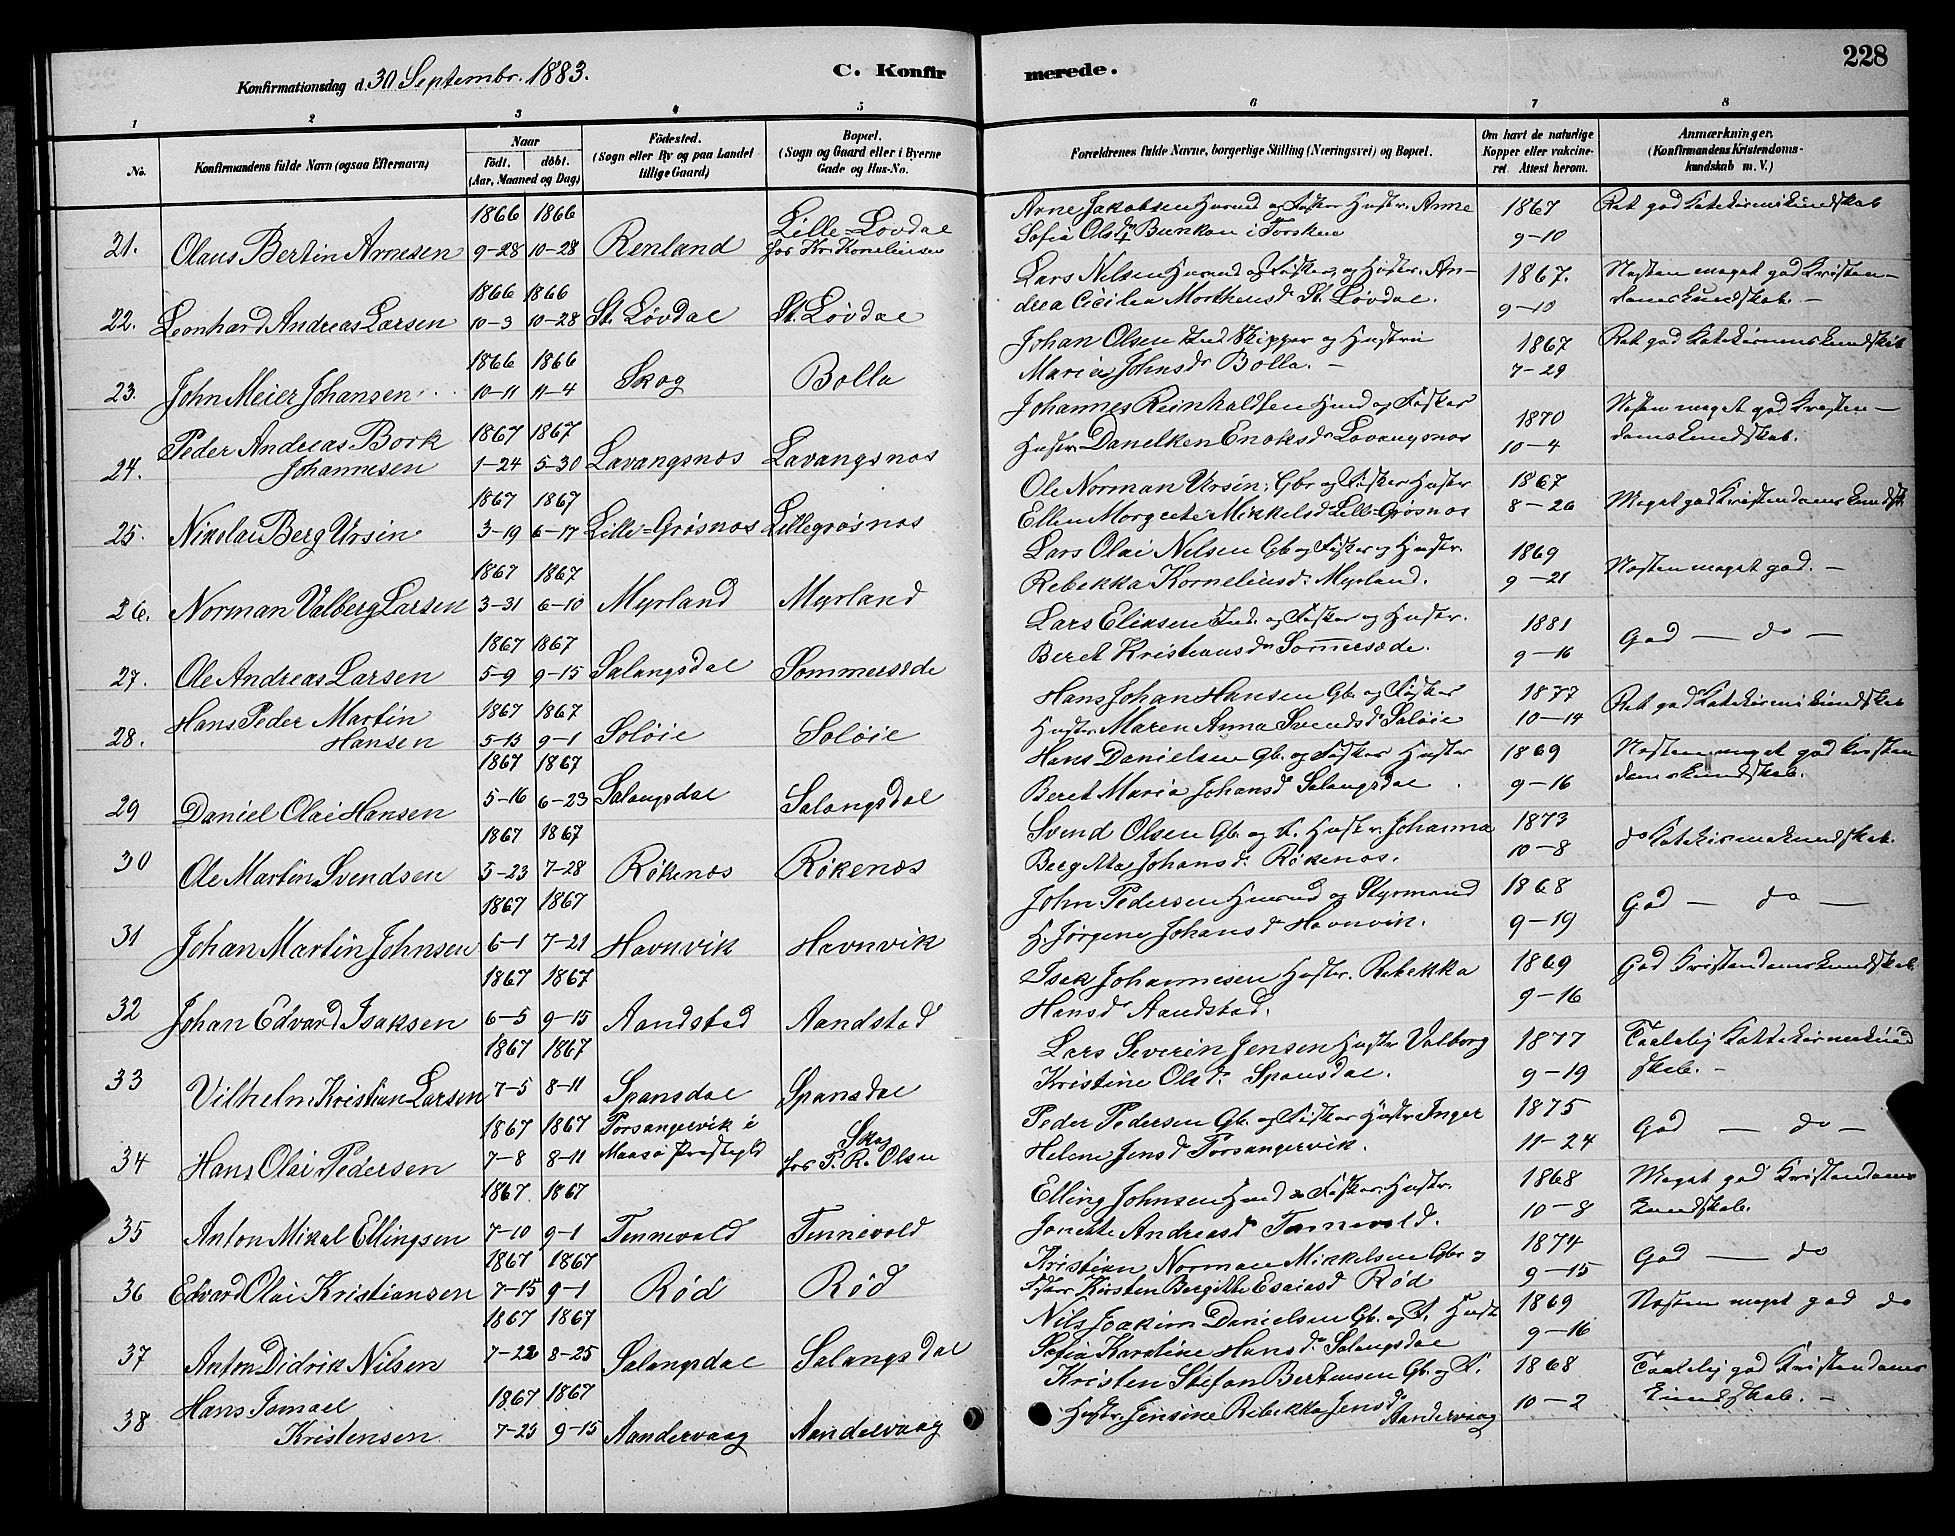 Konfirmationsdag d. 30 Septembr. 1883. C. Konfir merede. 228
1 2 3 4 5 6 7 8
No. Konfirmandens fulde Navn (ogsaa Efternavn) Naar født. døbt. (Aar, Maaned og Dag) Fødested. (Sogn eller By og paa Landet tillige Gaard) Bopæl. (Sogn og Gaard eller i Byerne Gade og Hus-No. Forældrenes fulde Navne, borgerlige Stilling (Næringsvei) og Bopæl. Om havt de naturlige Kopper eller vakcineret. Attest herom. Anmærkninger. (Konfirmandens Kristendomskundskab m. V.)
1866 1866 Lille-Løvdal Arne Jakobsen Husmd og Fisker Hustr. Anne 1867
21. Olaus Bertin Arnesen 9-28 10-28 Renland hos Kr. Kornelius­sen Sofia Olsd. Bunkan i Torsken 9-10
1866 1866 Lars Nilsen Husmd og Fisker og Hustr. An- 1867. Næsten meget god Kristen-
22. Leonhard Andreas Larsen 10-3 10-28 St. Løvdal St. Løvdal drea Cicilia Morthensd. St. Løvdal. 9-10 domskundskab. -
1866 1866 Johan Olsen Skipper og Hustru 1867
23. John Meier Johansen 10-11 11-4 Skog Bolla Maria Johnsd. Bolla. - 7-29
Peder Andreas Bork 1867 1867 Johannes Reinholdsen Husmd og Fisker 1870 Næsten meget god Kristen-
24. Johannesen 1-24 5-30 Lavangsnæs Lavangsnæs Hustr. Danelken Enoksd. Lavangsnæs 10-4 domskundskab.
1867 1867 Ole Norman Ursin. Gbr og Fisker Hustr 1867
25. Nikolai Berg Ursin 3-19 6-17 Lille-Grøsnæs Lillegrøsnæs Ellen Margrete Mikkelsd Lille-Grøsnæs 8-26 Meget god Kristendomskundsk
1867 1867 Lars Olai Nilsen Gb og Fisker og Hustr. 1869
26. Norman Valberg Larsen 3-31 6-10 Myrland Myrland Rebekka Korneliusd. Myrland. 9-21 Næsten meget god. -
1867 1867 Lars Eliksen Ind. og Fisker og Hustr. 1881
27. Ole Andreas Larsen 5-9 9-15 Salangsdal Sommersæde Beret Kristiansd. Sommersæde. 9-16 God - do -
Hans Peder Martin 1867 1867 Hans Johan Hansen Gb. og Fisker 1877
28. Hansen 5-13 9-1 Soløie Soløie Hustr. Maren Anna Svendsd. Soløie 10-14
1867 1867 Hans Danielsen Gb. og Fisker Hustr 1869 Næsten meget god Kristen
29 Daniel Olai Hansen 5-16 6-23 Salangsdal Salangsdal Beret Maria Johansd. Salangsdal 9-16 domskundskab.
1867 1867 Svend Olsen Gb. og F. Hustr. Johanna 1873
30 Ole Martin Svendsen 5-23 7-28 Røkenæs Røkenæs Bergitte Johansd. Røkenæs. 10-8
1867 1867 John Pedersen Husmd og Styrmand 1868
31 Johan Martin Johnsen 6-1 7-21 Havnvik Havnvik H. Jørgine Johansd. Havnvik. 9-19 God - do -
1867 1867 Isak Johannesen Hustr. Rebekka 1869 God Kristendomskundskab.
32 Johan Edvard Isaksen 6-5 9-15 Aandstad Aandstad Hansd. Aandstad. 9-16
1867 1867 Lars Severin Jensen Hustr Valborg 1877
33 Vilhelm Kristian Larsen 7-5 8-11 Spansdal Spansdal Kristine Olsd. Spansdal. 9-19 skab. -
1867 1867 Porsangervik i Skog Peder Pedersen Gb. og Fisker Hustr Inger 1875
34 Hans Olai Pedersen 7-8 8-11 Maasø Præstegjld hos P. R. Olsen Helene Jensd. Porsangervik. 11-24 God - do -
1867. 1867 Elling Johnsen Husmd og Fisker. Hustr. 1868 Meget god Kristendoms
35 Anton Mikal Ellingsen 7-10 9-1 Tennevold Tennevold Jonette Andreasd. Tennevold. 10-8 kundskab.
1867 1867 Kristian Norman Mikkelsen Gbr og 1874
36 Edvard Olai Kristiansen 7-15 9-1 Rød Rød Fisker Kirsten Bergitte Esaiasd. Rød 9-15 God - do
1867 1867 Nils Joakim Danielsen Gb. og F. Hustr 1869 Næsten meget god do
37 Anton Didrik Nilsen 7-22 8-25 Salangsdal Salangsdal Sofia Karoline Hansd. Salangsdal 9-16
Hans Ismael 1867 1867 Kristen Stefan Berteusen Gb. og F. 1868 Taalelig god Kristendoms
38 Kristensen 7-25 9-15 Aandervaag Aandervaag Hustr. Jensine Rebekka Jensd. Aandervaag 10-2 kundskab. -